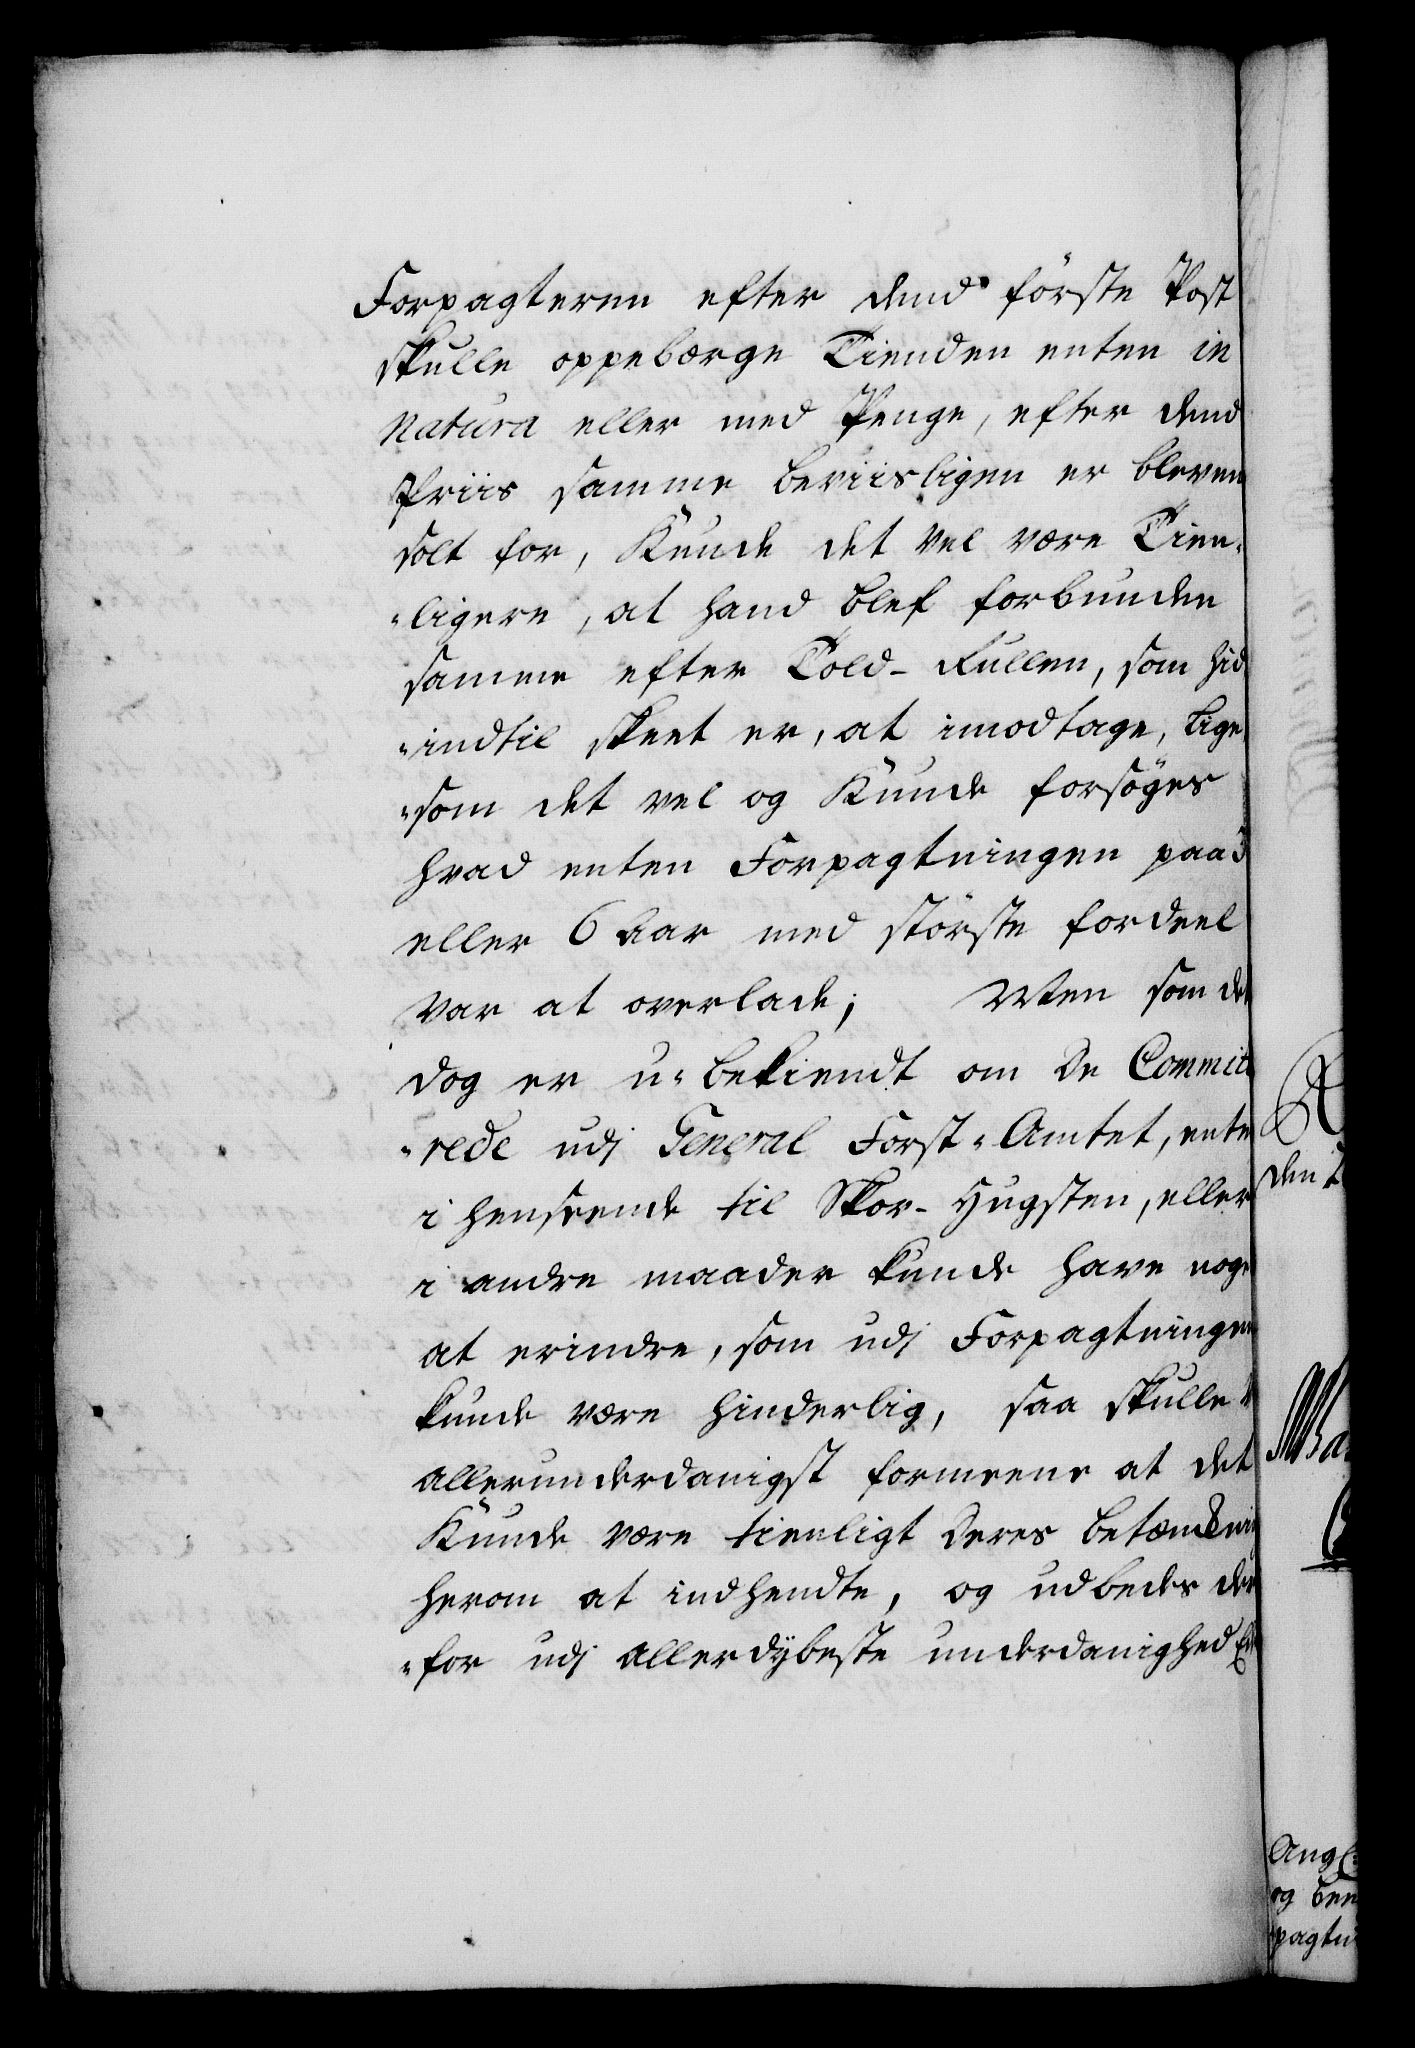 Forpagteren efter dend förste Post
skulle oppebærge Tienden enten in
Natura eller med Penge, efter dend
Priis samme beviisligen er bleven
solt for, Kunde det vel være Tien-
-ligere, at hand blef forbunden
samme efter Told-Rullen, som hid
-indtil skeet er, at imodtage, lige
-som det vel og Kunde forsöges
hvad enten Forpagtningen paa 3
eller 6 Aar med störste fordeel
var at overlade; Men som det
dog er u-bekiendt om De Commit
-rede udj General Forst-Amtet, ente
i henseende til Skov-Hugsten, eller
i andre maader kunde have noge
at erindre, som udj Forpagtningen
kunde være hinderlig, saa skulle
allerunderdanigst formeene at det
Kunde være tienligt Deres betænkni
herom at indhendte, og udbedes der
-for udj allerdÿbeste underdanighed
den
Ma
Ang
og
pagtn